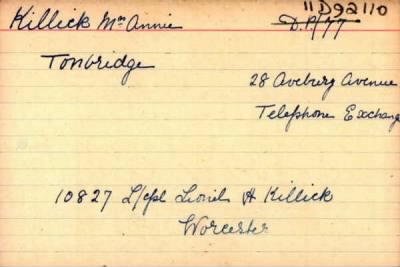 Killick Mrs Annie
11D92110
D.P/77
Tonbridge
28 Avebury Avenue
Telephone Exchange
10827 L/cpl Lionel H Killick
Worcester